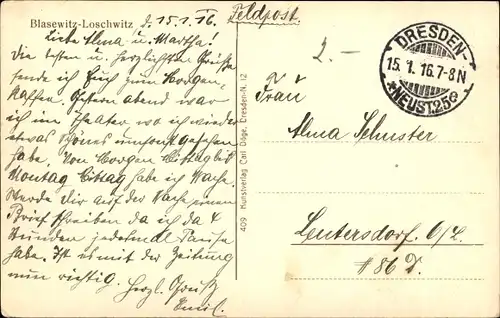 Blasewitz-Loschwitz d. 15.1.16. Feldpost
Liebe Alma u. Martha!
Die besten u. herzlichsten Grüße
sende ich Euch zum Morgen-
kaffee. Gestern abend war
ich im Theater wo ich wieder
etwas schönes umsonst gesehen
habe. Von Morgen Mittag bis
Montag Mittag habe ich Wache.
Werde Dir auf der Wache einen
Brief schreiben da ich da 4
Stunden jedesmal Pause
habe. Ist es mit der Zeitung
nun richtig. Herzl. Gruß
Emil.
409 Kunstverlag Carl Döge, Dresden-N. 12
2.–
DRESDEN-
15. 1. 16. 7-8 N
*NEUST. 25e
Frau
Alma Schuster
Leutersdorf O/L.
#86 D.